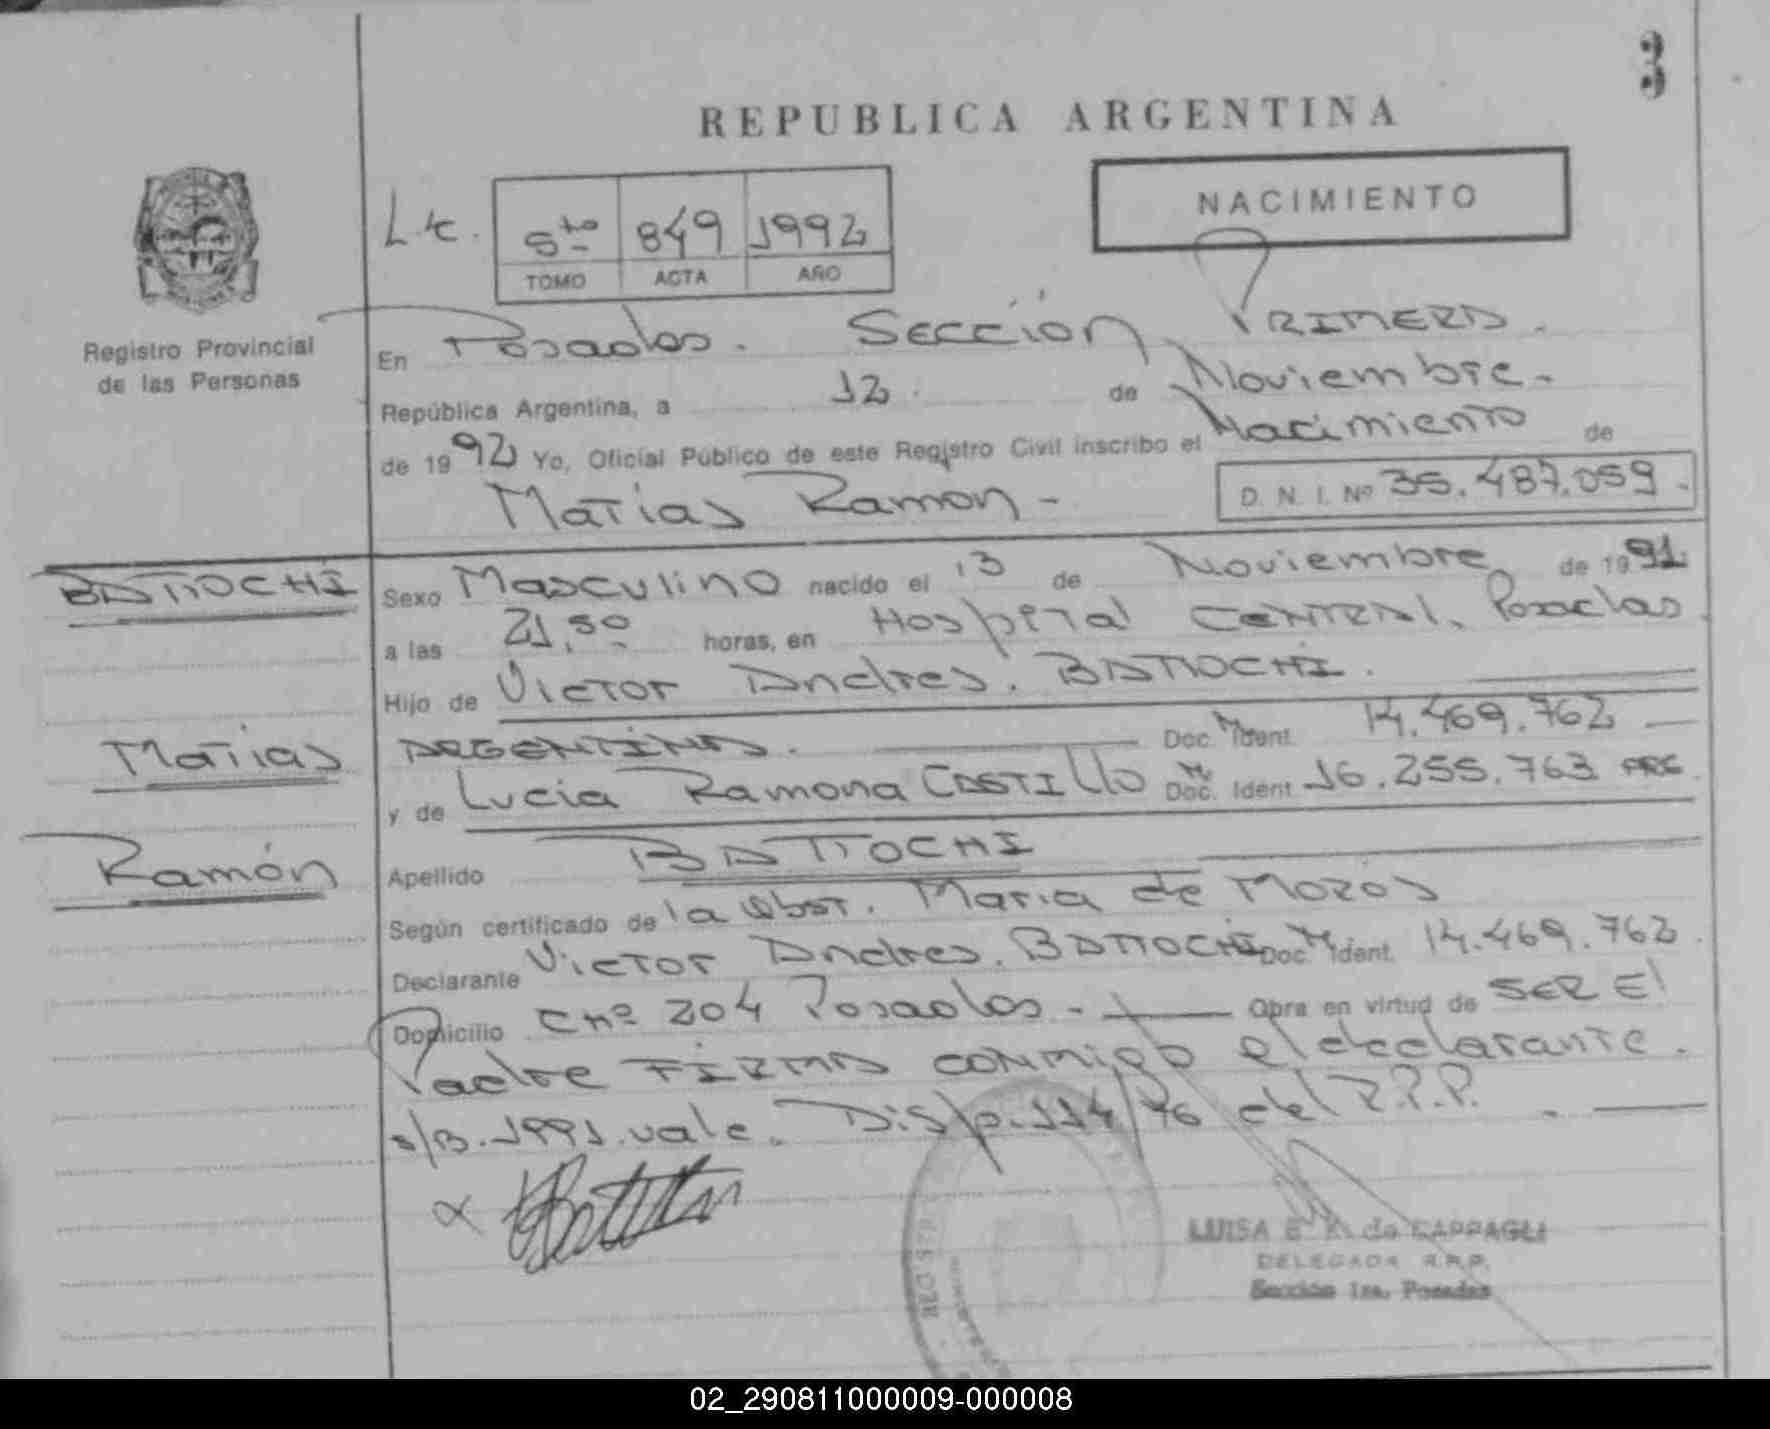 3
REPUBLICA ARGENTINA
NACIMIENTO
L.t. 5to 849 1992
TOMO ACTA AÑO
Registro Provincial
de las Personas
En Posadas. Sección PRIMERA.
República Argentina, a 12. de Noviembre.
de 1992 Yo, Oficial Público de este Registro Civil inscribo el Nacimiento de
Matias Ramon - D. N. I. Nº 35.487.059.
BATTOCHI
Sexo Masculino nacido el 13 de Noviembre de 1991
a las 21,50 horas, en Hospital CENTRAL. Posadas
Hijo de Victor Andres. BATTOCHI.
Matias
ARGENTINA. Doc. Ident. 14.469.762
y de Lucia Ramona CASTILLO Doc. Ident 16.255.763 ARG.
Ramón
Apellido BATTOCHI
Según certificado de la Obst. Maria de Mozos
Declarante Victor Andres. BATTOCHI Doc. Ident. 14.469.762.
Domicilio Chº 204 Posadas - Obra en virtud de SER El
Padre FIRMA conmigo el declarante.
s/B. 1991. vale. Disp. 114/76 del R.P.P.
LUISA E. K. de CAPPAGLI
DELEGADA R.P.P.
Sección 1ra. Posadas
02_290811000009-000008